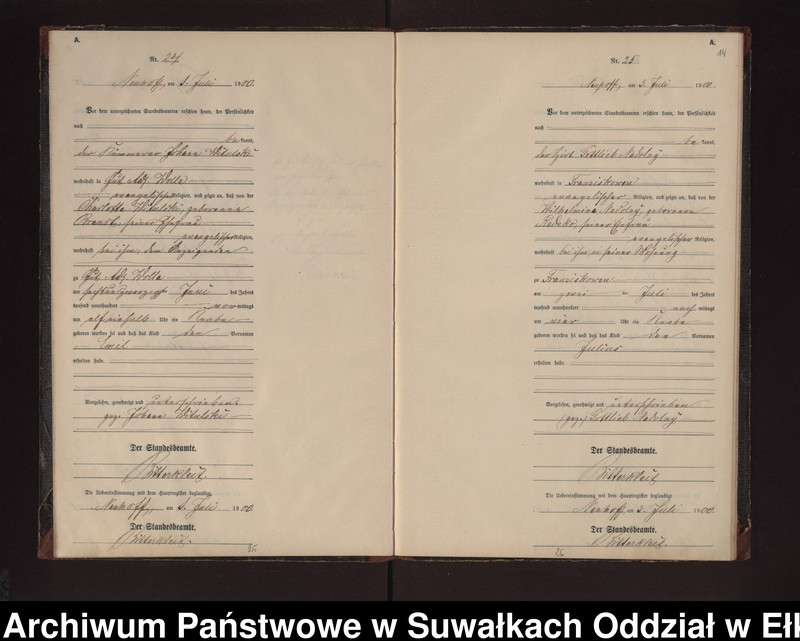 A.
Nr. 24.
Neuhoff, am 1. Juli 1900.
Vor dem unterzeichneten Standesbeamten erschien heute, der Persönlichkeit
nach
be kannt,
der Kämmerer Johann Witulski
wohnhaft in Gut Adl. Wolla
evangelischer Religion, und zeigte an, daß von der
Charlotte Witulski, geborenen
Brandt, seiner Ehefrau
evangelischer Religion,
wohnhaft bei ihm, dem Anzeigenden
zu Gut Adl. Wolla
am sechsundzwanzigsten Juni des Jahres
tausend neunhundert vor mittags
um elf einhalb Uhr ein Knabe
geboren worden sei und daß das Kind den Vornamen
Emil
erhalten habe.
Vorgelesen, genehmigt und unterschrieben
gez. Johann Witulski
Der Standesbeamte.
Die Uebereinstimmung mit dem Hauptregister beglaubigt
Neuhoff, am 1. Juli 1900.
Der Standesbeamte.
A.
14
Nr. 25.
Neuhoff, am 2. Juli 1900.
Vor dem unterzeichneten Standesbeamten erschien heute, der Persönlichkeit
nach
be kannt,
der Wirt Gottlieb Nadolny
wohnhaft in Franziskowen
evangelischer Religion, und zeigte an, daß von der
Wilhelmine Nadolny geborenen
seiner Ehefrau
evangelischer Religion,
wohnhaft bei ihm in seiner Wohnung
zu Franziskowen
am zwei ten Juli des Jahres
tausend neunhundert nach mittags
um vier Uhr ein Knabe
geboren worden sei und daß das Kind den Vornamen
Julius
erhalten habe.
Vorgelesen, genehmigt und unterschrieben
(gez.) Gottlieb Nadolny
Der Standesbeamte.
Die Uebereinstimmung mit dem Hauptregister beglaubigt
Neuhoff, am 2. Juli 1900.
Der Standesbeamte.
26
Archiwum Państwowe w Suwałkach Oddział w Eł